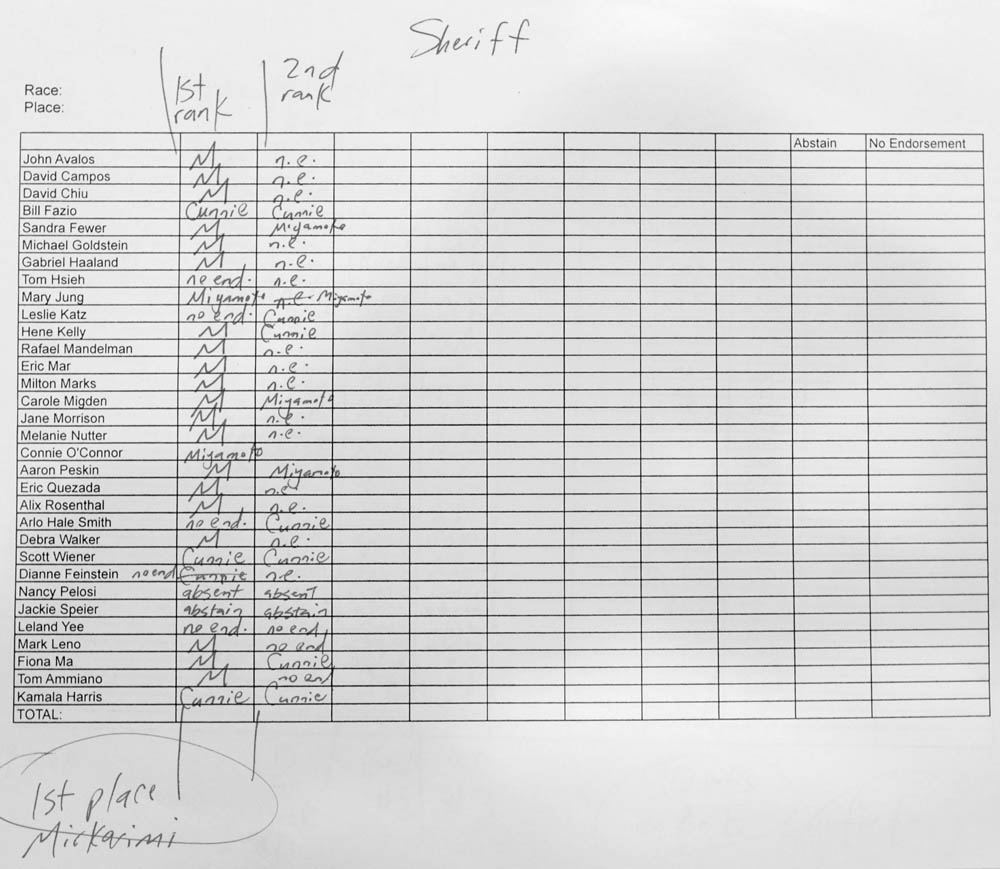 Sheriff
Race:
Place:
1st rank 2nd rank
Abstain No Endorsement
John Avalos M n.e.
David Campos M n.e.
David Chiu M n.e.
Bill Fazio Cunnie Cunnie
Sandra Fewer M Miyamoto
Michael Goldstein M n.e.
Gabriel Haaland M n.e.
Tom Hsieh no end. n.e.
Mary Jung Miyamoto n.e. Miyamoto
Leslie Katz no end. Cunnie
Hene Kelly M Cunnie
Rafael Mandelman M n.e.
Eric Mar M n.e.
Milton Marks M n.e.
Carole Migden M Miyamoto
Jane Morrison M n.e.
Melanie Nutter M n.e.
Connie O'Connor Miyamoto
Aaron Peskin M Miyamoto
Eric Quezada M n.e
Alix Rosenthal M n.e.
Arlo Hale Smith no end. Cunnie
Debra Walker M n.e.
Scott Wiener Cunnie Cunnie
Dianne Feinstein no end Cunnie n.e.
Nancy Pelosi absent absent
Jackie Speier abstain abstain
Leland Yee no end. no end
Mark Leno M no end
Fiona Ma M Cunnie
Tom Ammiano M no end
Kamala Harris Cunnie Cunnie
TOTAL:
1st place
Mirkarimi